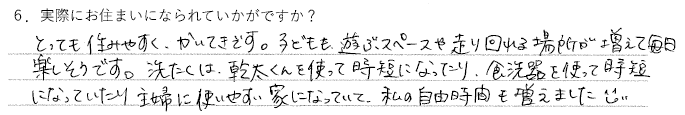 6. 実際にお住まいになられていかがですか？
とっても住みやすく、かいてきです。子どもも、遊ぶスペースや走り回れる場所が増えて毎日
楽しそうです。洗たくは、乾太くんを使って時短になったり、食洗器を使って時短
になっていたり主婦に使いやすい家になっていて、私の自由時間も増えました